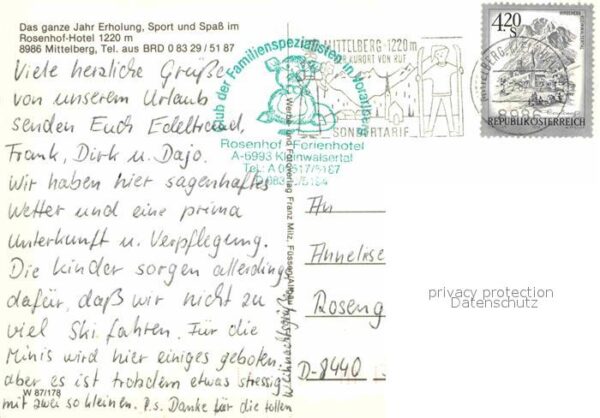 Das ganze Jahr Erholung, Sport und Spaß im
Rosenhof-Hotel 1220 m
8986 Mittelberg, Tel. aus BRD 0 83 29 / 51 87
Viele herzliche Grüße
von unserem Urlaub
senden Euch Edeltraud,
Frank, Dirk u. Dajo.
Wir haben hier sagenhaftes
Wetter und eine prima
Unterkunft u. Verpflegung.
Die Kinder sorgen allerdings
dafür, daß wir nicht zu
viel Ski fahren. Für die
Minis wird hier einiges geboten.
aber es ist trotzdem etwas stressig
mit zwei so kleinen. P.s. Danke für die tollen
Weihnachtsgrüße
W 87/178
Club der Familienspezialisten in Vorarlberg
Rosenhof Ferienhotel
A-6993 Kleinwalsertal
Tel. A 05517/5187
D 08329/5184
MITTELBERG-1220m
KURORT VON RUF
SONDERTARIF
Werbe- und Fotoverlag Franz Milz, Füssen/Allgäu
4.20
S
REPUBLIK ÖSTERREICH
An
Anneliese
Roseng
D-8440
privacy protection
Datenschutz